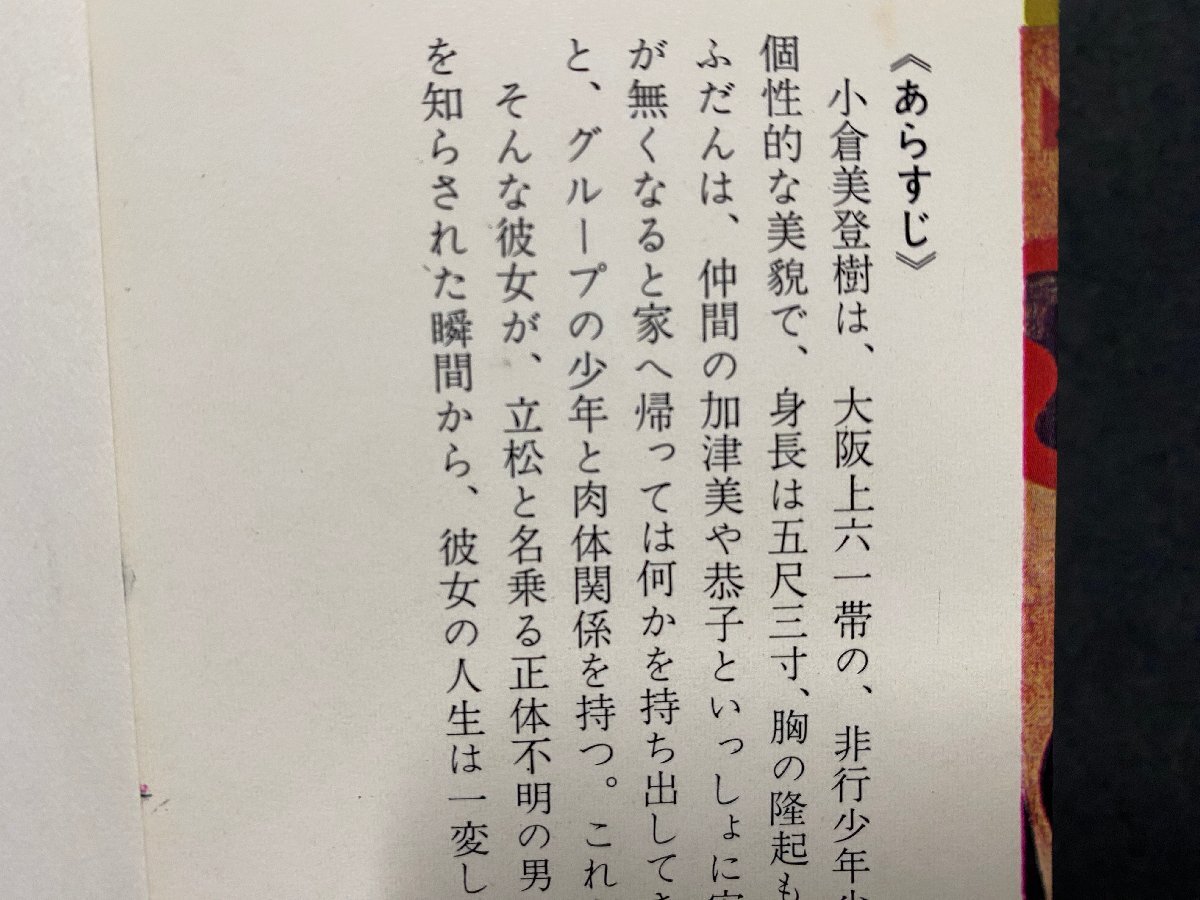 《あらすじ》
小倉美登樹は、大阪上六一帯の、非行少年
個性的な美貌で、身長は五尺三寸、胸の隆起も
ふだんは、仲間の加津美や恭子といっしょに
が無くなると家へ帰っては何かを持ち出して
と、グループの少年と肉体関係を持つ。これ
そんな彼女が、立松と名乗る正体不明の男
を知らされた瞬間から、彼女の人生は一変し